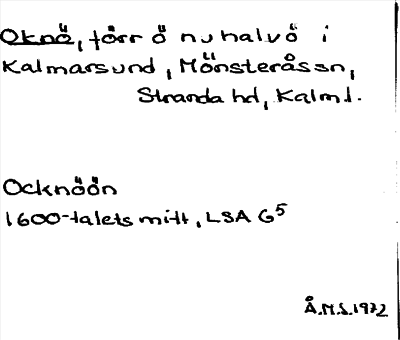 Oknö, förr ö nu halvö i
Kalmarsund, Mönsterås sn,
Stranda hd, Kalm.l.
Ocknöön
1600-talets mitt, LSA G5
Å.M.S.1972